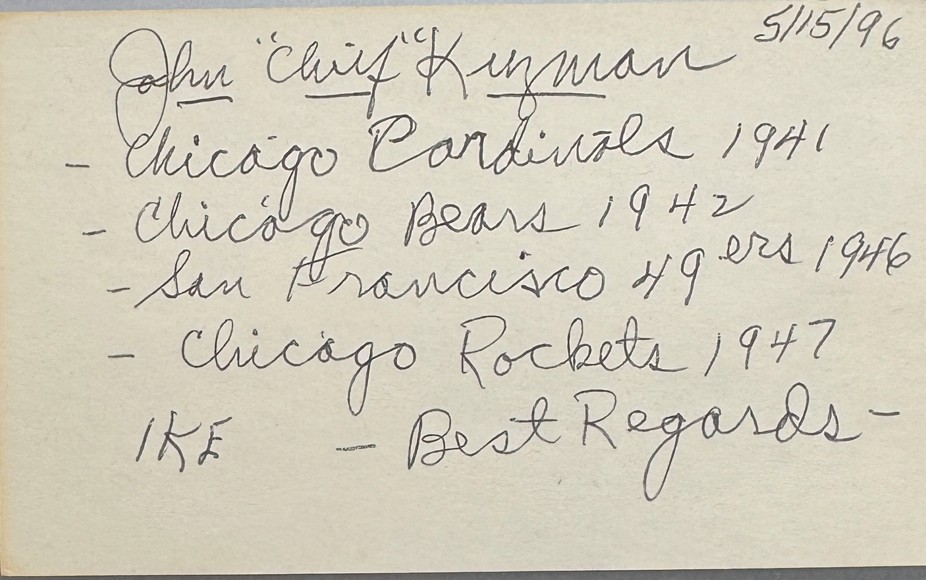 5/15/96
John "Chief" Kuzman
- Chicago Cardinals 1941
- Chicago Bears 1942
- San Francisco 49ers 1946
- Chicago Rockets 1947
IKE - Best Regards -